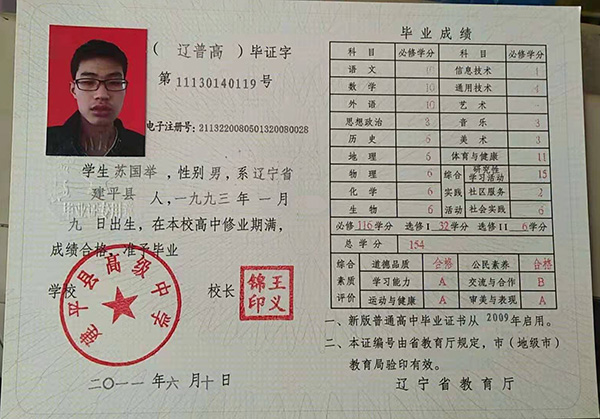 （ 辽普高 ）毕证字
第 11130140119 号
电子注册号: 2113220080501320080028
学生 苏国举 ，性别 男，系 辽宁省
建平县 人，一九九三 年 一 月
九 日出生，在本校高中修业期满，
成绩合格，准予毕业
学校
建平县高级中学
校长
王义锦印
二〇一一 年 六 月 十 日
毕业成绩
科 目 必修学分 科 目 必修学分
语 文 10 信息技术 4
数 学 10 通用技术 4
外 语 10 艺 术
思想政治 8 音 乐 3
历 史 6 美 术 3
地 理 6 体育与健康 11
物 理 6 综合 研究性学习活动 15
化 学 6 实践 社区服务 2
生 物 6 活动 社会实践 6
必修 116 学分 选修 I 32 学分 选修 II 6 学分
总 学 分 154
综合 道德品质 合格 公民素养 合格
素质 学习能力 A 交流与合作 B
评价 运动与健康 A 审美与表现 A
一、新版普通高中毕业证书从 2009 年启用。
二、本证编号由省教育厅规定，市（地级市）
教育局验印有效。
辽宁省教育厅